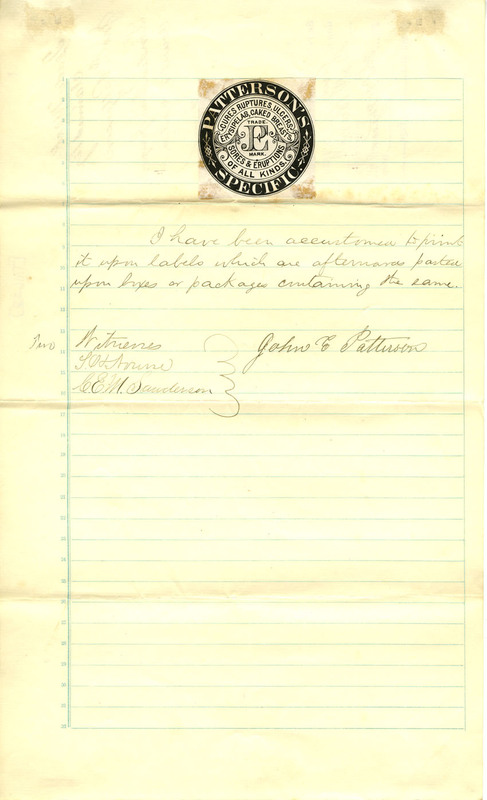 PATTERSON'S
CURES RUPTURES, ULCERS,
ERYSIPELAS, CAKED BREASTS
TRADE
MARK.
SORES & ERUPTIONS
OF ALL KINDS.
SPECIFIC
I have been accustomed to print
it upon labels which are afterwards pasted
upon boxes or packages containing the same.
Two Witnesses John E Patterson
C E M. Sanderson